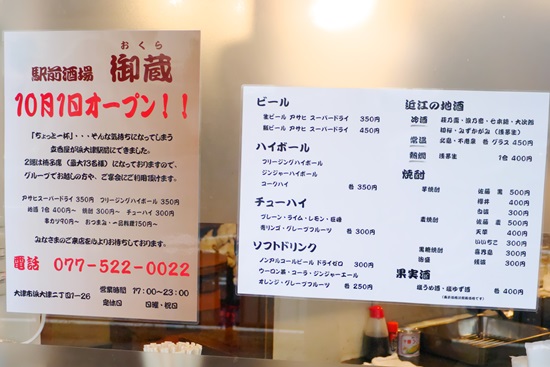 おくら
駅前酒場 御蔵
10月1日オープン!!
「ちょっと一杯」・・・そんな気持ちになってしまう
立呑屋が浜大津駅前にできました。
2階は椅子席(最大13名様)になっておりますので、
グループでお越しの方や、ご宴会にご利用頂けます。
アサヒスーパードライ 350円 フリージングハイボール 350円
地酒 1合 400円〜 焼酎 300円〜 チューハイ 300円
串カツ 90円〜 おつまみ・一品料理150円〜
みなさまのご来店を心よりお待ちしております。
電話 077-522-0022
大津市浜大津二丁目1-26
営業時間 17:00〜23:00
定休日 日曜・祝日
ビール
生ビール アサヒ スーパードライ 350円
瓶ビール アサヒ スーパードライ 450円
ハイボール
フリージングハイボール
ジンジャーハイボール
コークハイ 各 350円
チューハイ
プレーン・ライム・レモン・巨峰
青リンゴ・グレープフルーツ 各 300円
ソフトドリンク
ノンアルコールビール ドライゼロ 300円
ウーロン茶・コーラ・ジンジャーエール
オレンジ・グレープフルーツ 各 250円
近江の地酒
冷酒 萩乃露・浪乃音・七本槍・大治郎
初桜・みずかがみ(浅茅生)
常温 北島・不老泉 各 グラス 450円
熱燗 浅茅生 1合 400円
焼酎
芋焼酎 佐藤 黒 500円
櫻井 400円
300円
麦焼酎 佐藤 麦 500円
天草 400円
いいちこ 300円
黒糖焼酎 喜界島 300円
300円
果実酒
梅うめ酒・梅ゆず酒 各 400円